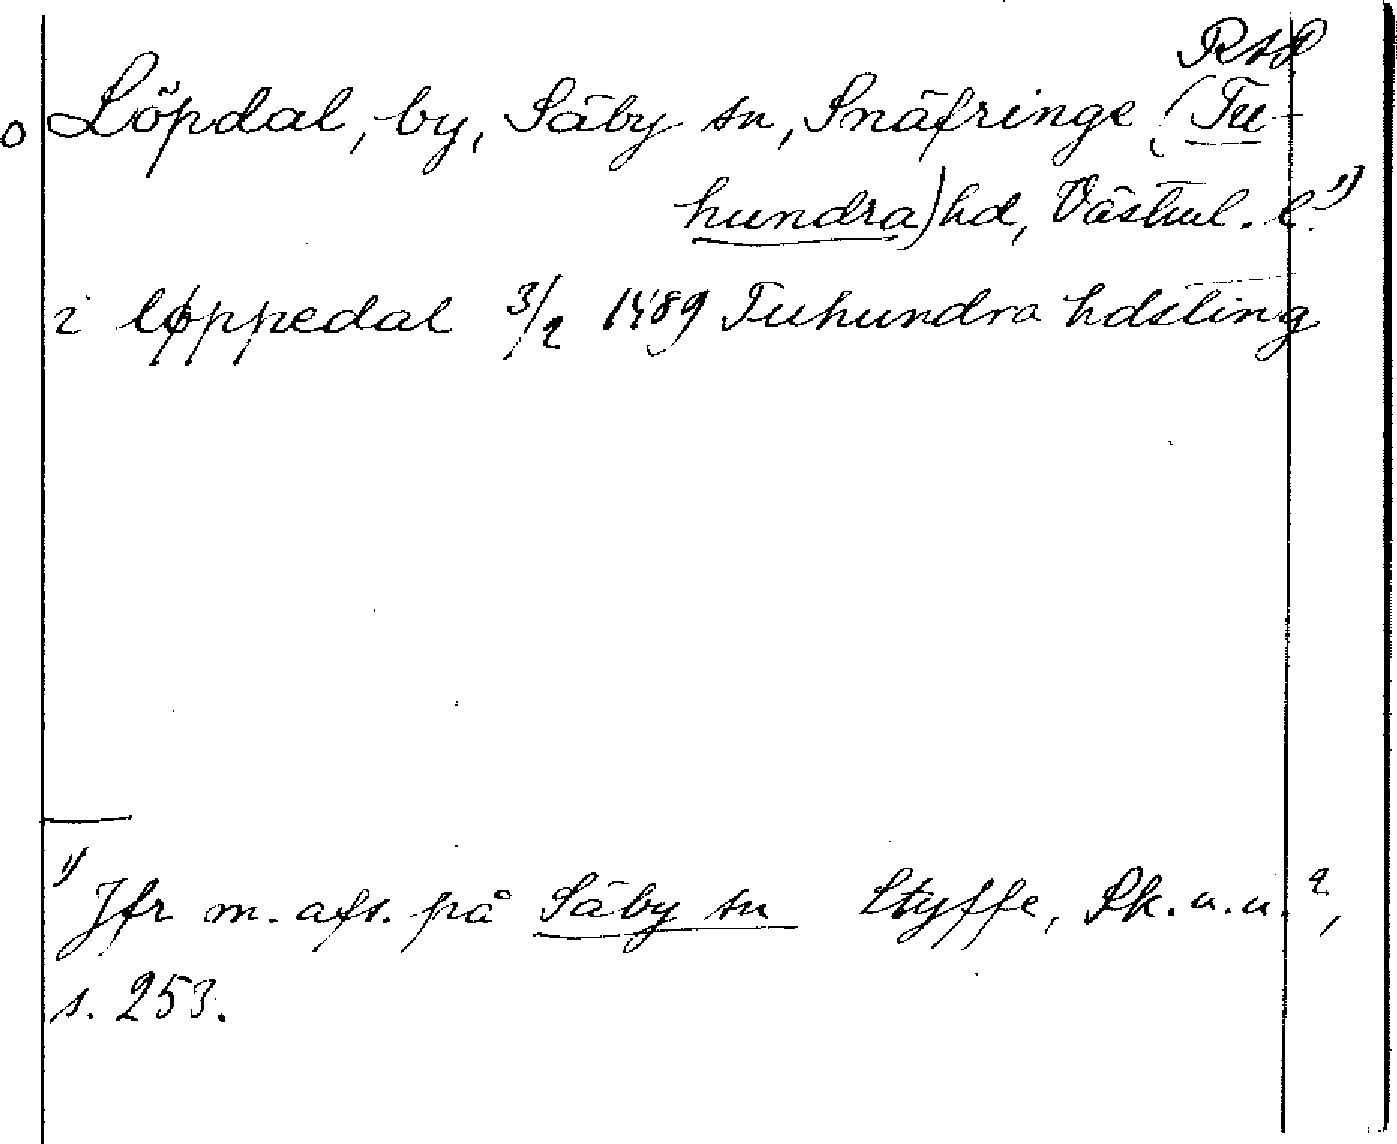 RAP
o Löpdal, by, Säby sn, Snäfringe (Tu-
hundra) hd, Västml. l.¹⁾
i løppedal 3/2 1489 Tuhundra hdsting
¹⁾ Jfr m. afs. på Säby sn Styffe, Sk. u. u.², 
s. 253.